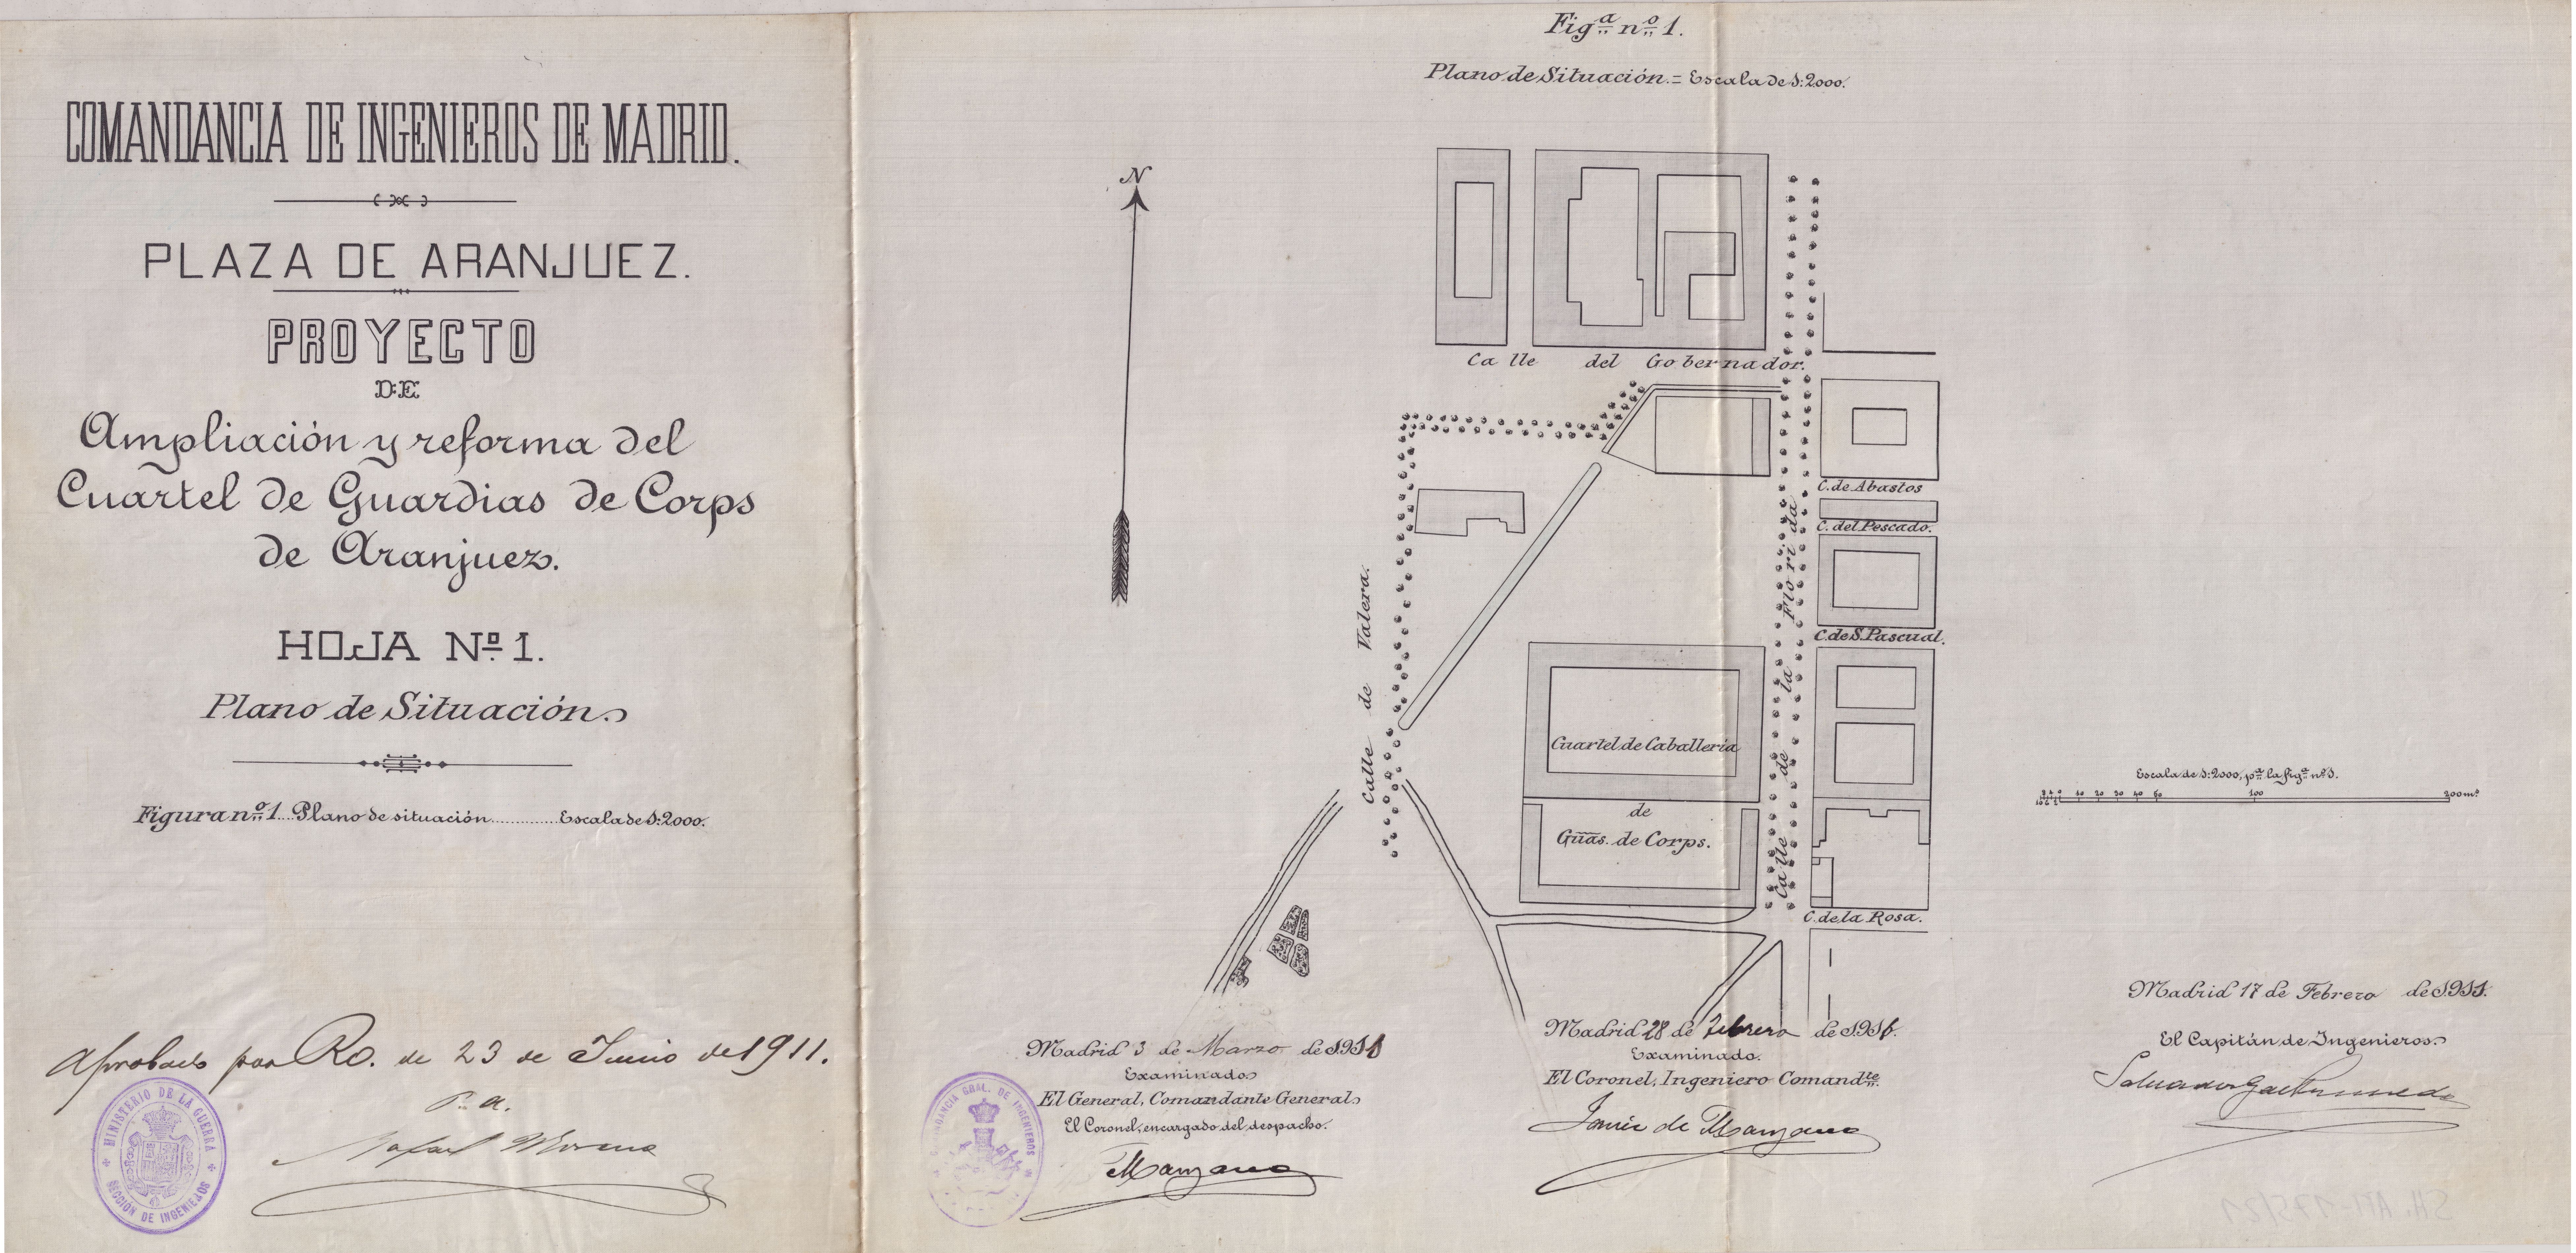 COMANDANCIA DE INGENIEROS DE MADRID.
PLAZA DE ARANJUEZ.
PROYECTO
DE
Ampliación y reforma del
Cuartel de Guardias de Corps
de Aranjuez.
HOJA Nº 1.
Plano de Situación.
Figura nº 1. Plano de situación............ Escala de 1:2000.
Aprobado por Ro. de 23 de Junio de 1911.
P. a.
Rafael Moreno
MINISTERIO DE LA GUERRA
SECCIÓN DE INGENIEROS
Figª nº 1.
Plano de Situación.= Escala de 1:2000.
N
Calle del Gobernador.
C. de Abastos
C. del Pescado.
C. de S. Pascual.
C. de la Rosa.
Calle de Valera.
Calle de la Florida
Cuartel de Caballería
de
Guas. de Corps.
Escala de 1:2000, pª la figª nº 1.
10 20 30 40 50 100 200 ms
Madrid 3 de Marzo de 1911
Examinado
El General, Comandante General
El Coronel, encargado del despacho.
Manzano
GRAL. DE INGENIEROS
Madrid 28 de Febrero de 1911.
Examinado.
El Coronel, Ingeniero Comandte.
de Manzano
Madrid 17 de Febrero de 1911.
El Capitán de Ingenieros